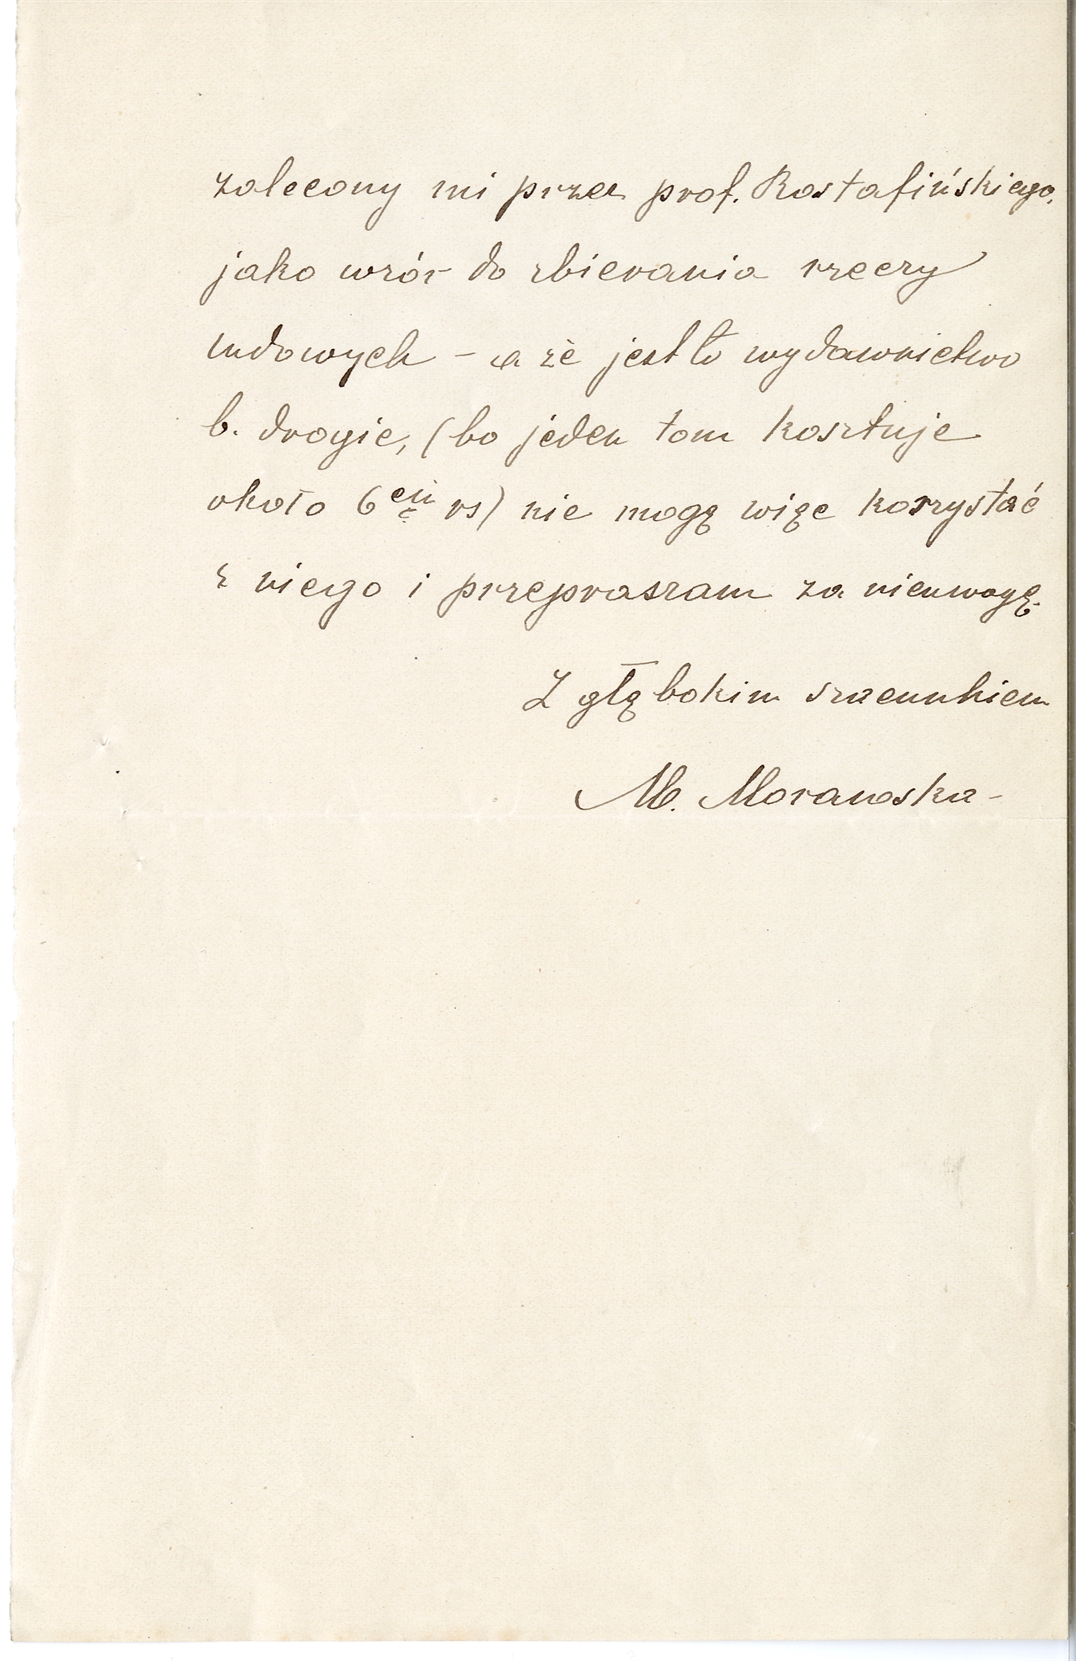 zalecony mi przez prof. Rostafińskiego,
jako wzór do zbierania rzeczy
ludowych – a że jest to wydawnictwo
b. drogie, (bo jeden tom kosztuje
około 6ciu rs) nie mogę więc korzystać
z niego i przepraszam za nieuwagę.
Z głębokim szacunkiem
M. Morawska –